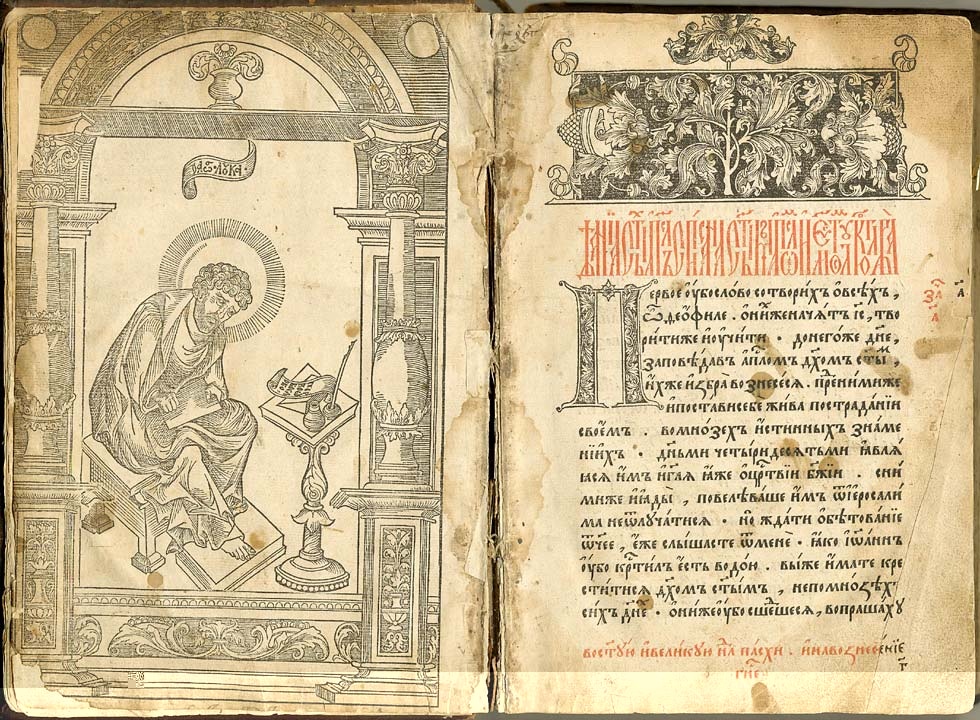 ст҃ыи апⷭ҇лъ лꙋка
Первое ᲂу҆бо слово сотворихъ ѡ҆всѣхъ,
ѽ ѳео́филе . ѻ҆ниⷯже начатъ і҆с҃, тво
ри́тиже и҆ᲂу҆чи́ти . донего́же дн҃е,
заповѣ́давъ а҆пⷭ҇ломъ дх҃омъ ст҃ыⷨ,
и҆́хже и҆ꙁбра̀ воꙁнесе́сѧ . преⷣнимиже
и҆поставѝ себѐ жи́ва пострада́нїи
свое́мъ . вомно́ꙁехъ и҆́стинныхъ ꙁна́ме
нїихъ . дн҃ьми четы́ридесѧтьми ꙗ҆влѧ́
ꙗсѧ и҆̀мъ и҆гл҃ѧ ꙗ҆́же ѻ҆црⷭ҇твїи бж҃їи . сни́
миже и҆ꙗ҆ды̀, повелѣва́ше и҆̀мъ ѿі҆ерⷭ҇оали
ма неѿлꙋча́тисѧ . но жда́ти ѻ҆бѣтова́нїе
ѻ҆́ч҃ее, є҆́же слы́шасте ѿменѐ . ꙗ҆́ко і҆ѡ҆а́ннъ
ᲂу҆́бо крⷭ҇ти́лъ є҆́сть водо́ю . вы́же и҆́мате кре
сти́тисѧ дх҃омъ ст҃ымъ, непомно́ꙁѣхъ
си́хъ дн҃е . ѻ҆ни́же ᲂу҆бо сше́дшесѧ, вопраша́хꙋ
за҃ч
а҃
а҃
востꙋ́ю и҆вели́кꙋю неⷣлю па́схи . и҆наво꙼ꙁнесе́нїе
гн҃е